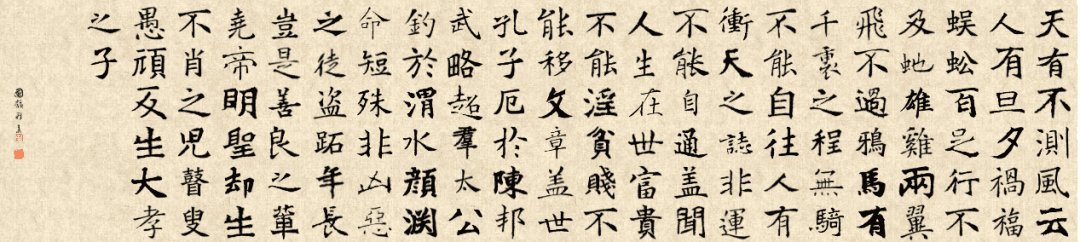 天有不測風云
人有旦夕禍福
蜈蚣百足行不
及虵雄雞兩翼
飛不過鴉馬有
千裏之程無騎
不能自往人有
衝天之誌非運
不能自通蓋聞
人生在世富貴
不能淫貧賤不
能移文章盖世
孔子厄於陳邦
武略超羣太公
釣於渭水顔渕
命短殊非凶惡
之徒盜跖年長
豈是善良之輩
堯帝明聖却生
不肖之児瞽叟
愚頑反生大孝
之子